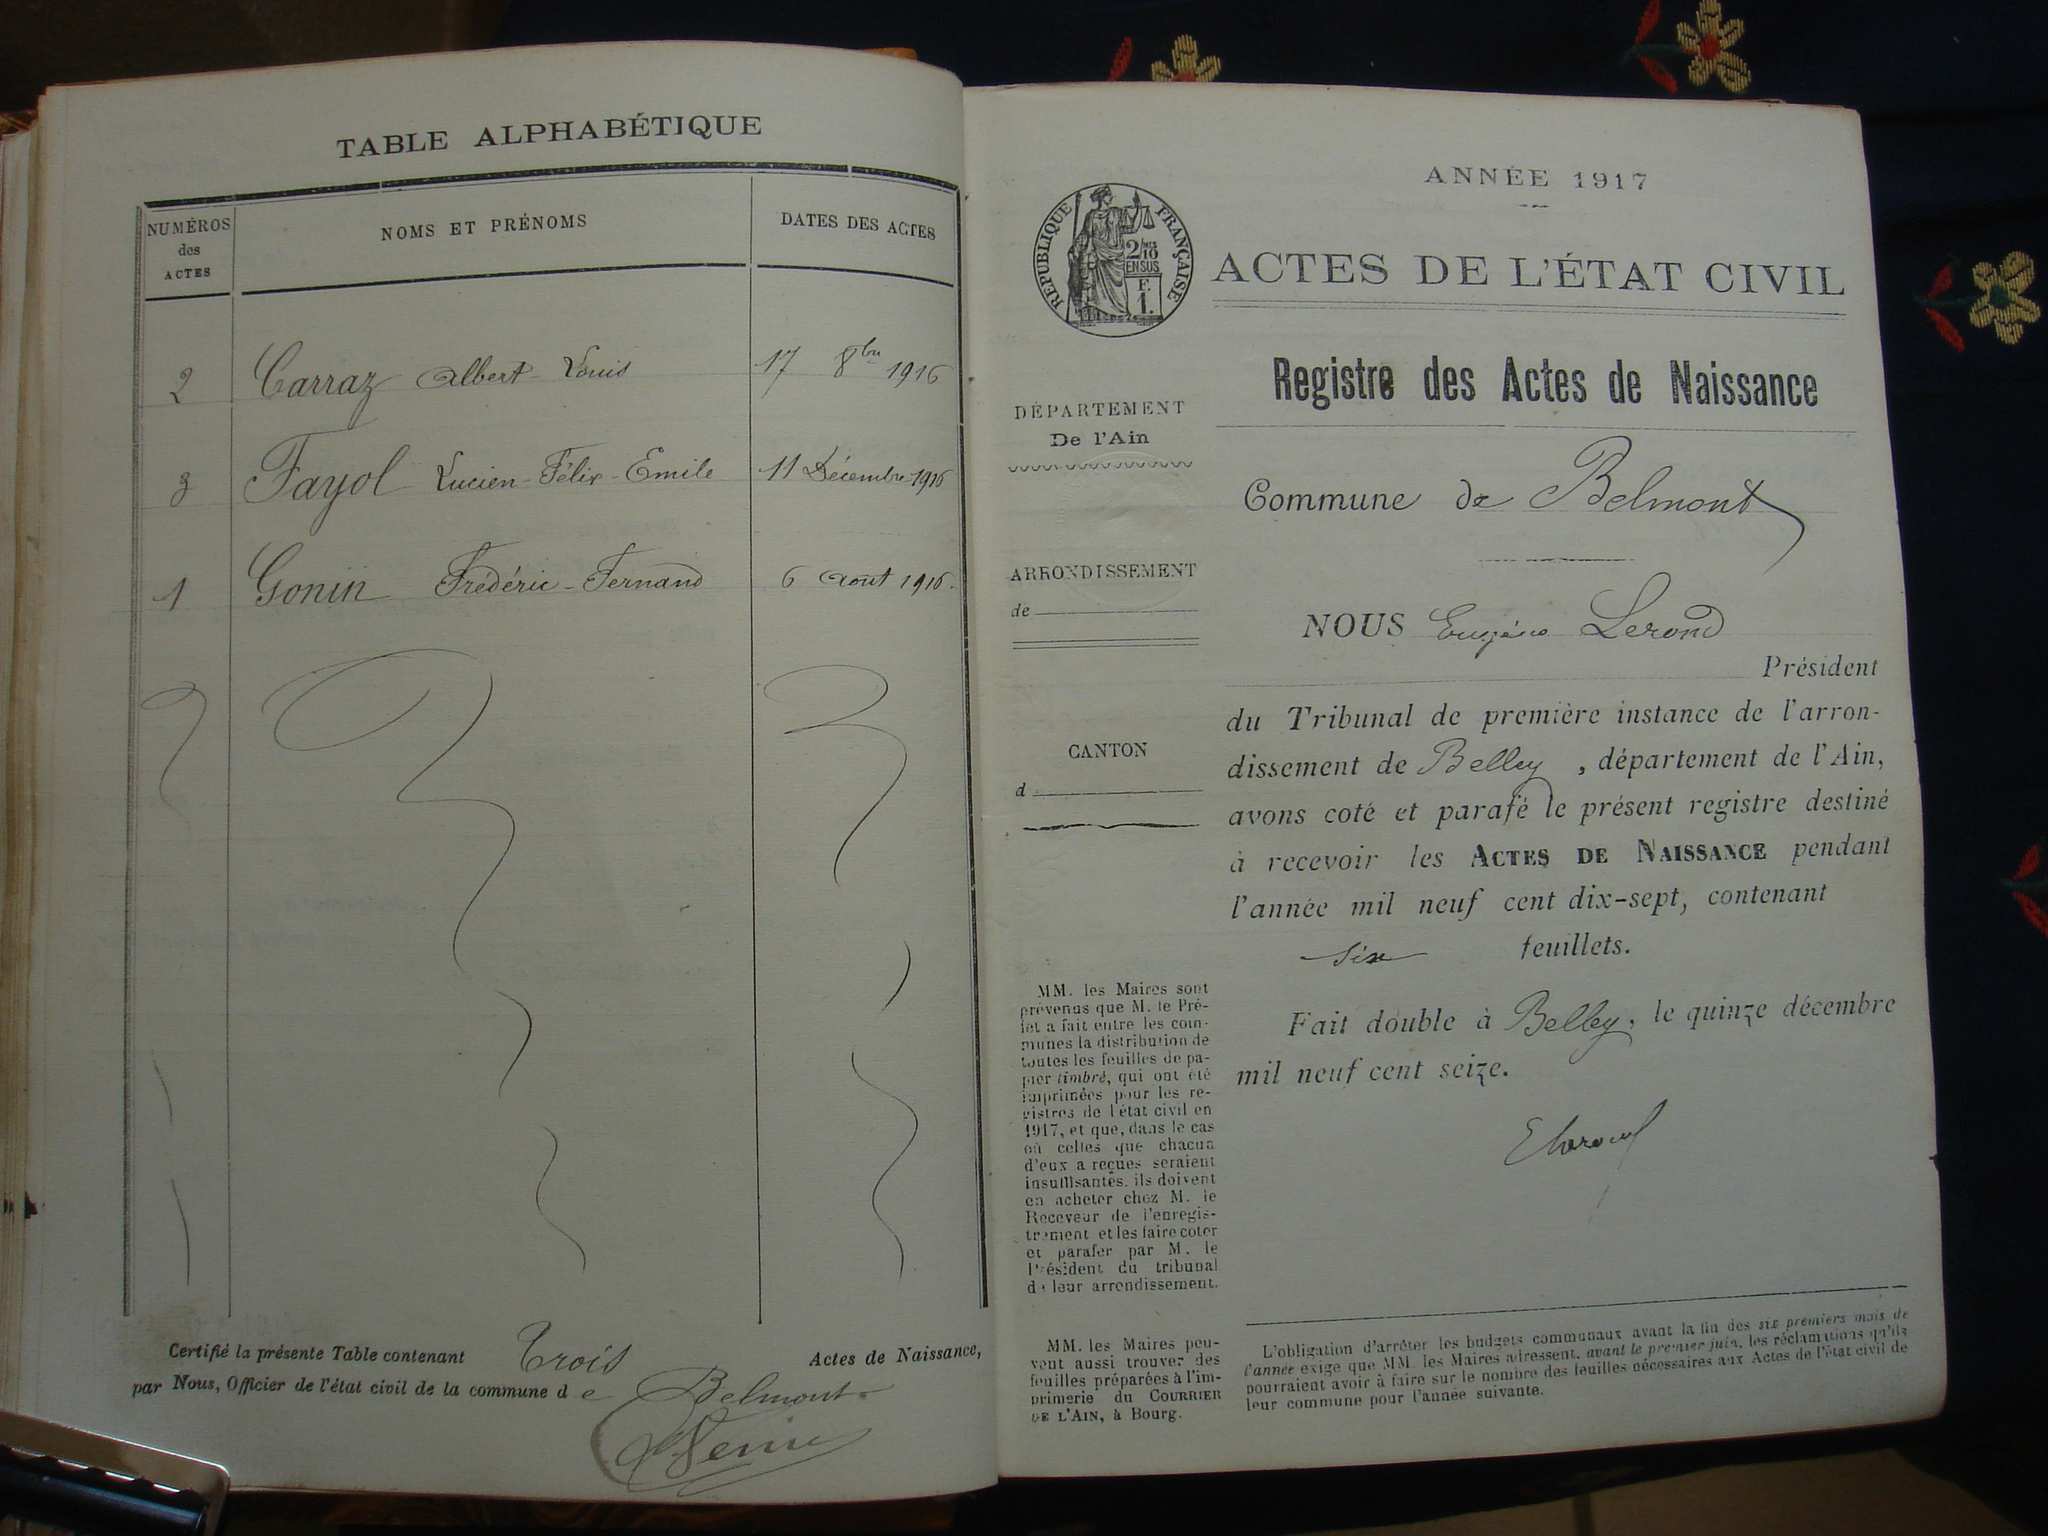 TABLE ALPHABÉTIQUE
NUMÉROS
des
ACTES
NOMS ET PRÉNOMS
DATES DES ACTES
2 Carraz Albert-Louis 17 8bre 1916
3 Fayol Lucien-Félix-Emile 11 Décembre 1916
1 Gonin Frédéric-Fernand 6 Aout 1916.
Certifié la présente Table contenant Trois Actes de Naissance,
par Nous, Officier de l'état civil de la commune d e Belmont
ANNÉE 1917
RÉPUBLIQUE FRANÇAISE
2/10
EN SUS
F.
1.
ACTES DE L'ÉTAT CIVIL
Registre des Actes de Naissance
DÉPARTEMENT
De l'Ain
Commune de Belmont
ARRONDISSEMENT
de
NOUS Eugène Lerond
Président
du Tribunal de première instance de l'arron-
dissement de Belley, département de l'Ain,
avons coté et parafé le présent registre destiné
à recevoir les ACTES DE NAISSANCE pendant
l'année mil neuf cent dix-sept, contenant
six feuillets.
CANTON
d
Fait double à Belley, le quinze décembre
mil neuf cent seize.
MM. les Maires sont
prévenus que M. le Pré-
fet a fait entre les com-
munes la distribution de
toutes les feuilles de pa-
pier timbré, qui ont été
imprimées pour les re-
gistres de l'état civil en
1917, et que, dans le cas
où celles que chacun
d'eux a reçues seraient
insuffisantes, ils doivent
en acheter chez M. le
Receveur de l'enregis-
trement et les faire coter
et parafer par M. le
Président du tribunal
de leur arrondissement.
MM. les Maires peu-
vent aussi trouver des
feuilles préparées à l'im-
primerie du COURRIER
DE L'AIN, à Bourg.
L'obligation d'arrêter les budgets communaux avant la fin des six premiers mois de
l'année exige que MM. les Maires adressent, avant le premier juin, les réclamations qu'ils
pourraient avoir à faire sur le nombre des feuilles nécessaires aux Actes de l'état civil de
leur commune pour l'année suivante.